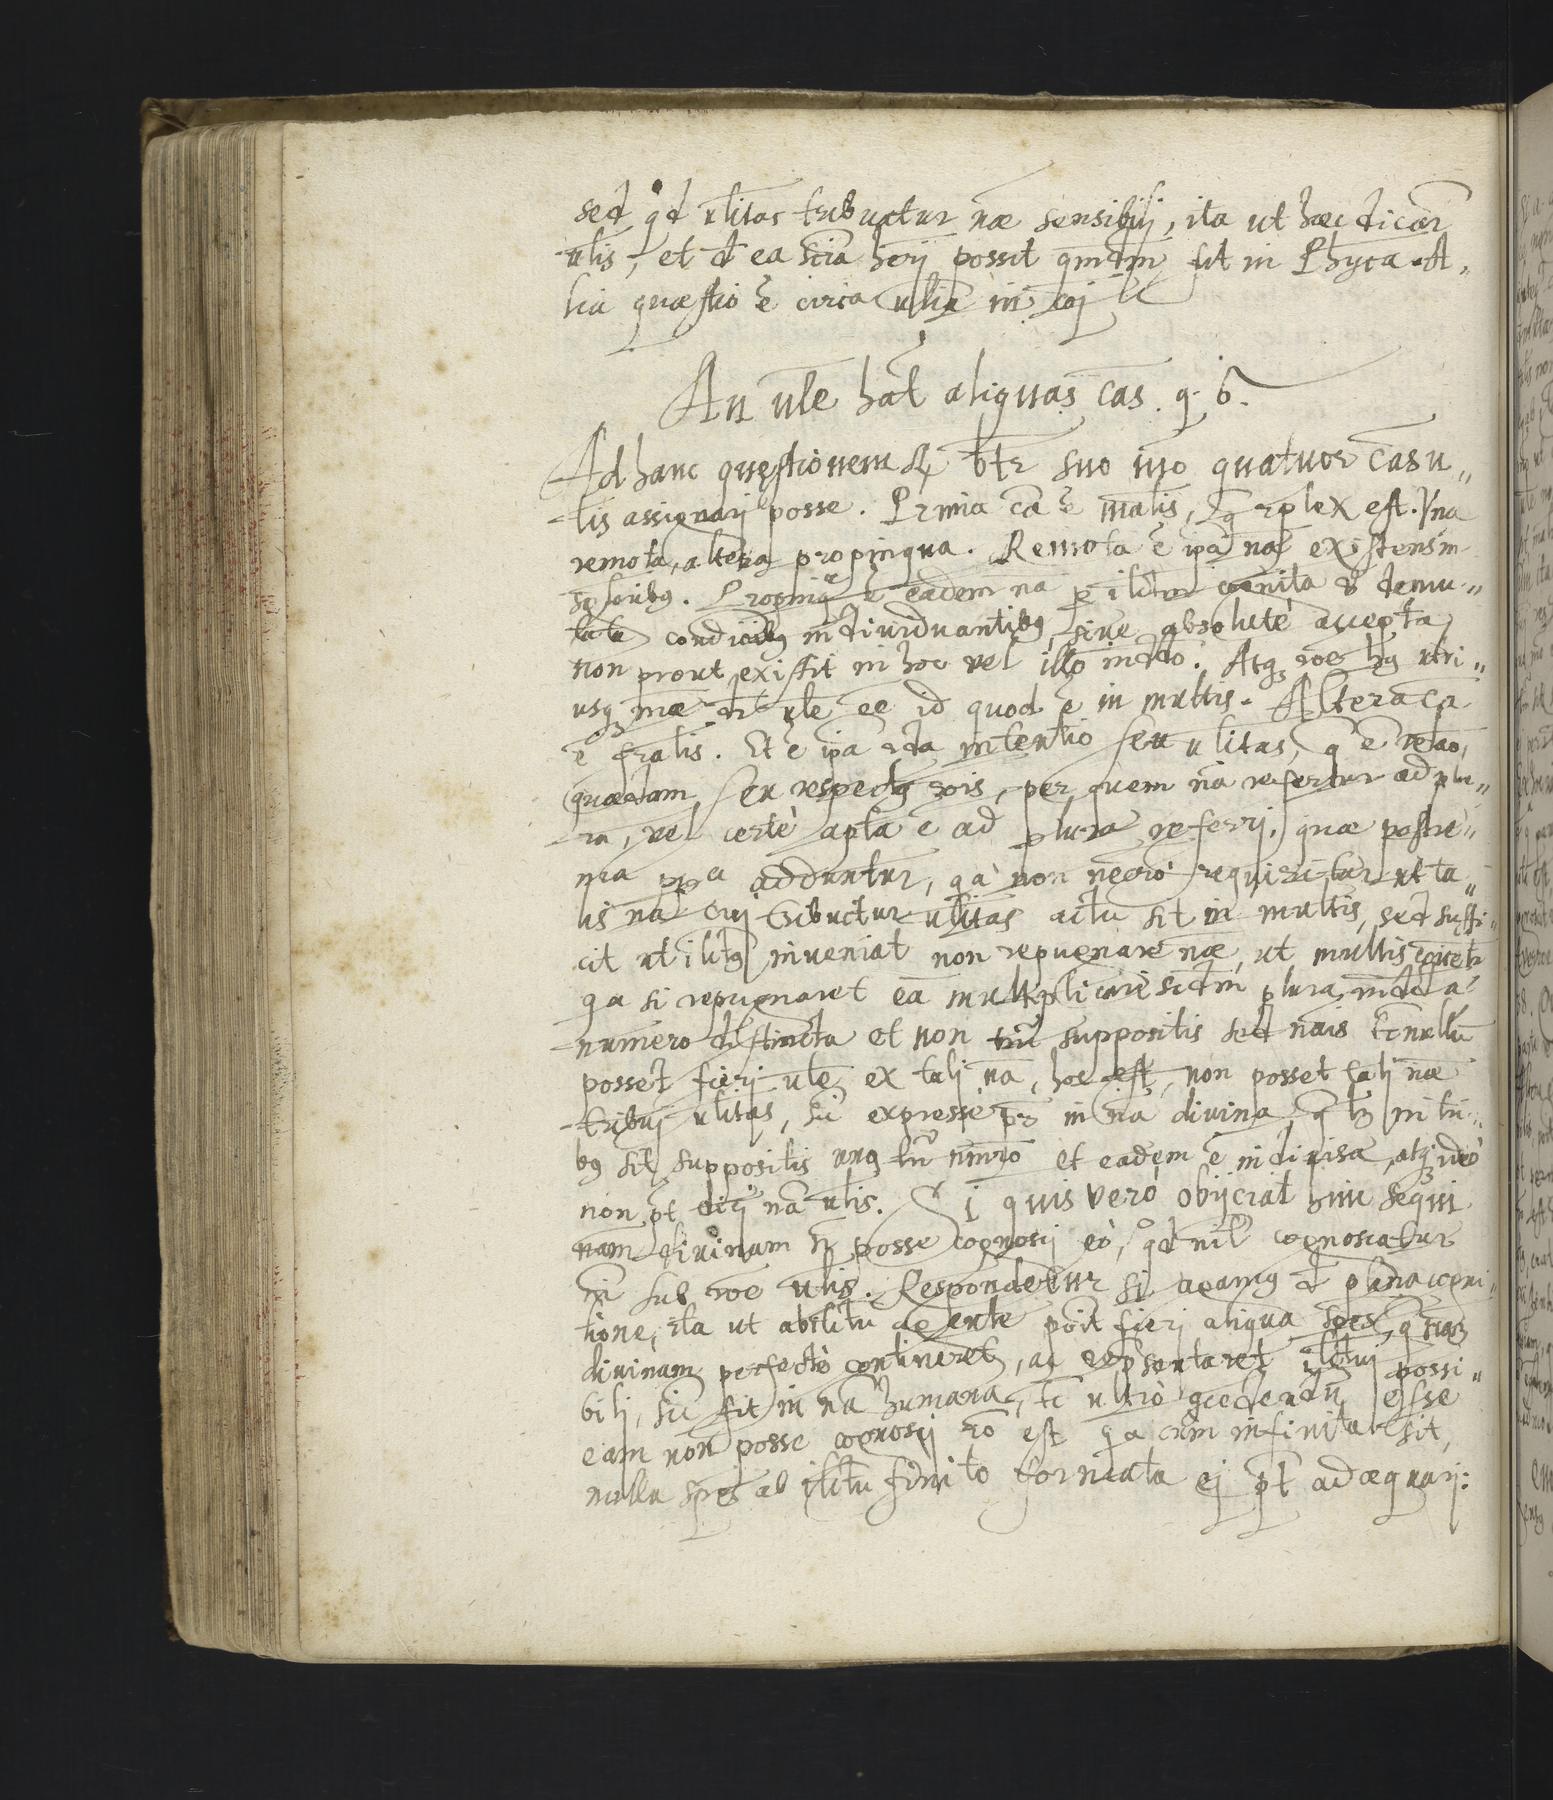 sed qd ulitas tribuatur næ sensibilj, ita ut hæc dicatr
ulis, et d ea scia herj possit qmdm fit in Phyca. A„
lia quæstio ē circa ulia in coj
An ule hat aliquas cas. q. 6.
Ad hanc quęstionem Rx btr suo mo quatuor cas u„
lis assignarj posse. Prima ca ē malis, q rplex est. Vna
remota, altera propinqua. Remota ē ipa na existens in
sglaribq. Propinq ē eadem na p ilctm cognita et denu„
tata condicibq individuantibq, sive absolutè accepta
non prout existit in hoc vel illo inddo. Atq roe hq utri„
usq mæ dr ule ee id quod ē in multis. Altera ca
ē fralis. Et ē ipa rta intentio seu ulitas, q ē relao,
quædam, seu respectq rois, per quem na refertur ad plu„
ra, vel certè apta ē ad plura referrj, quæ postre„
ma adduntur, qa non necrò requiritur ut ta„
lis na cuj tribuitur ulitas actu sit in multis, sed suffi„
cit ut ilctq inveniat non repugnare næ, ut multis coicetr
qa si repugnaret ea multiplicari scdm plura indda
numero distincta et non tm suppositis sed nais tc nullu
posset fierj ule ex talj na, hoc est, non posset talj næ
tribuj ulitas, sic expressè pz in na divina, q lz in tri„
bq sit suppositis unq tn nmro et eadem ē indivisa, atq ideò
non pt dicj na ulis. Si quis verò obijciat hinc sequi
nam divinam n posse cognoscj eò, qd nil cognoscatur
n sub roe ulis. Respondetur si agamq d plena cogni„
tione, ita ut ab ilctu agente poit fierj aliqua spes, q nam
divinam perfectè contineret, ac repsentaret ilctuj possi„
bilj, sic fit in na humana, tc ultrò gcedendu esse
eam non posse cognoscj ro est qa cum infinita sit,
nulla spes ab ilctu finito formata ej pt adæquarj: